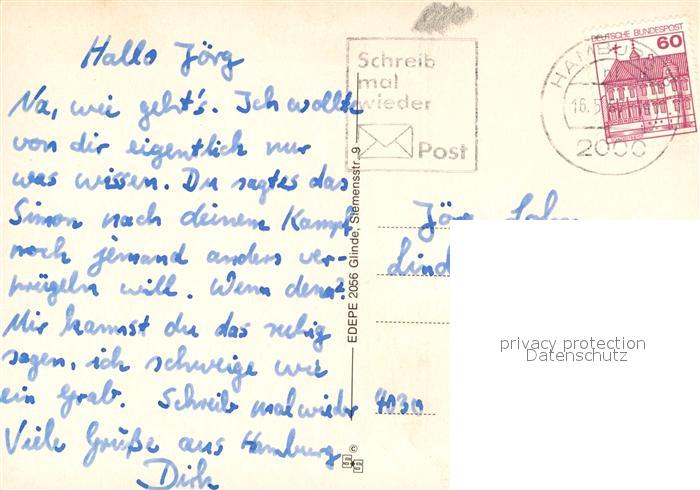 Hallo Jörg
Na, wie geht's. Ich wollte
von dir eigentlich nur
was wissen. Du sagtes das
Simon nach deinem Kampf
noch jemand anders ver-
prügeln will. Wenn denn?
Mir kannst du das ruhig
sagen, ich schweige wie
ein Grab. Schreib mal wieder
Viele Grüße aus Hamburg
Dirk
Schreib
mal
wieder
Post
HAMBU
16.5
2000
DEUTSCHE BUNDESPOST
60
EDEPE 2056 Glinde, Siemensstr. 9
©
Jörg
Lind
4030
privacy protection
Datenschutz